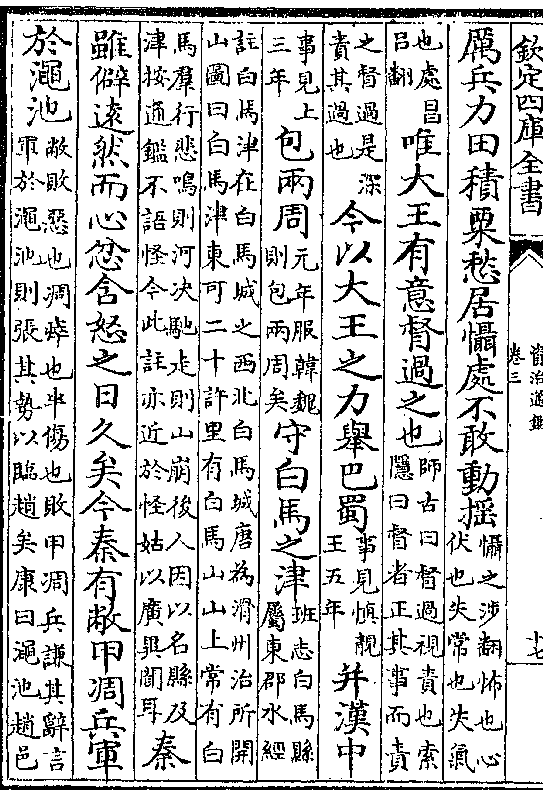 欽定四庫全書
資治通鑑
卷三
十七
厲兵力田積粟愁居懾處不敢動搖
懾之涉翻怖也心
伏也失常也失氣
也處昌
吕翻
唯大王有意督過之也
師古曰督過視責也索
隱曰督者正其事而責
之督過是深
責其過也
今以大王之力舉巴蜀
事見慎靚
王五年
并漢中
事見上
三年
包兩周
元年服韓魏
則包兩周矣
守白馬之津
班志白馬縣
屬東郡水經
註白馬津在白馬城之西北白馬城唐為滑州治所開
山圖曰白馬津東可二十許里有白馬山山上常有白
馬羣行悲鳴則河決馳走則山崩後人因以名縣及
津按通鑑不語怪今此註亦近於怪姑以廣異聞耳
秦
雖僻遠然而心忿含怒之日久矣今秦有敝甲凋兵軍
於澠池
敝敗惡也凋瘁也半傷也敗甲凋兵謙其辭言
軍於澠池則張其勢以臨趙矣康曰澠池趙邑